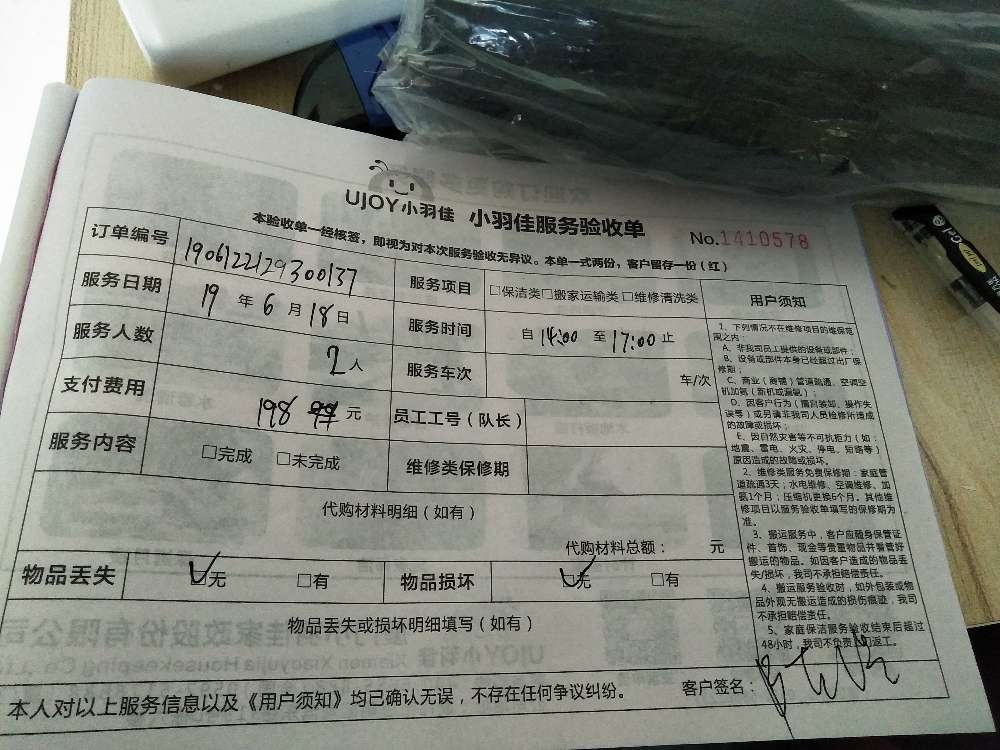 UJOY小羽佳 小羽佳服务验收单
No.1410578
本验收单一经核签，即视为对本次服务验收无异议。本单一式两份，客户留存一份（红）
订单编号 1906122129300137
服务项目 □保洁类□搬家运输类 □维修清洗类
服务日期 19 年 6 月 18 日
服务时间 自 14:00 至 17:00 止
服务人数 2 人
服务车次 车/次
支付费用 198 元
员工工号（队长）
服务内容 □完成 □未完成
维修类保修期
代购材料明细（如有）
代购材料总额： 元
物品丢失 ☑无 □有
物品损坏 ☑无 □有
物品丢失或损坏明细填写（如有）
本人对以上服务信息以及《用户须知》均已确认无误，不存在任何争议纠纷。
客户签名：
用户须知
1、下列情况不在维修项目的维保范
围之内：
A、非我司员工提供的设备或部件；
B、设备或部件本身已经超过出厂保
修期；
C、商业（商铺）管道疏通、空调空
机加氨（新机或漏氨）；
D、因客户行为（擅自装卸、操作失
误等）或另请非我司人员检修所造成
的故障或损坏；
E、因自然灾害等不可抗拒力（如：
地震、雷电、火灾、停电、短路等）
原因造成的故障或损坏。
2、维修类服务免费保修期：家庭管
道疏通3天；水电维修、空调维修、加
氨1个月；压缩机更换6个月。其他维
修项目以服务验收单填写的保修期为
准。
3、搬运服务中，客户应随身保管证
件、首饰、现金等贵重物品并看管好
搬运的物品。如因客户造成的物品丢
失/损坏，我司不承担赔偿责任。
4、搬运服务验收时，如外包装或物
品外观无搬运造成的损伤痕迹，我司
不承担赔偿责任。
5、家庭保洁服务验收结束后超过
48小时，我司不负责上门返工。